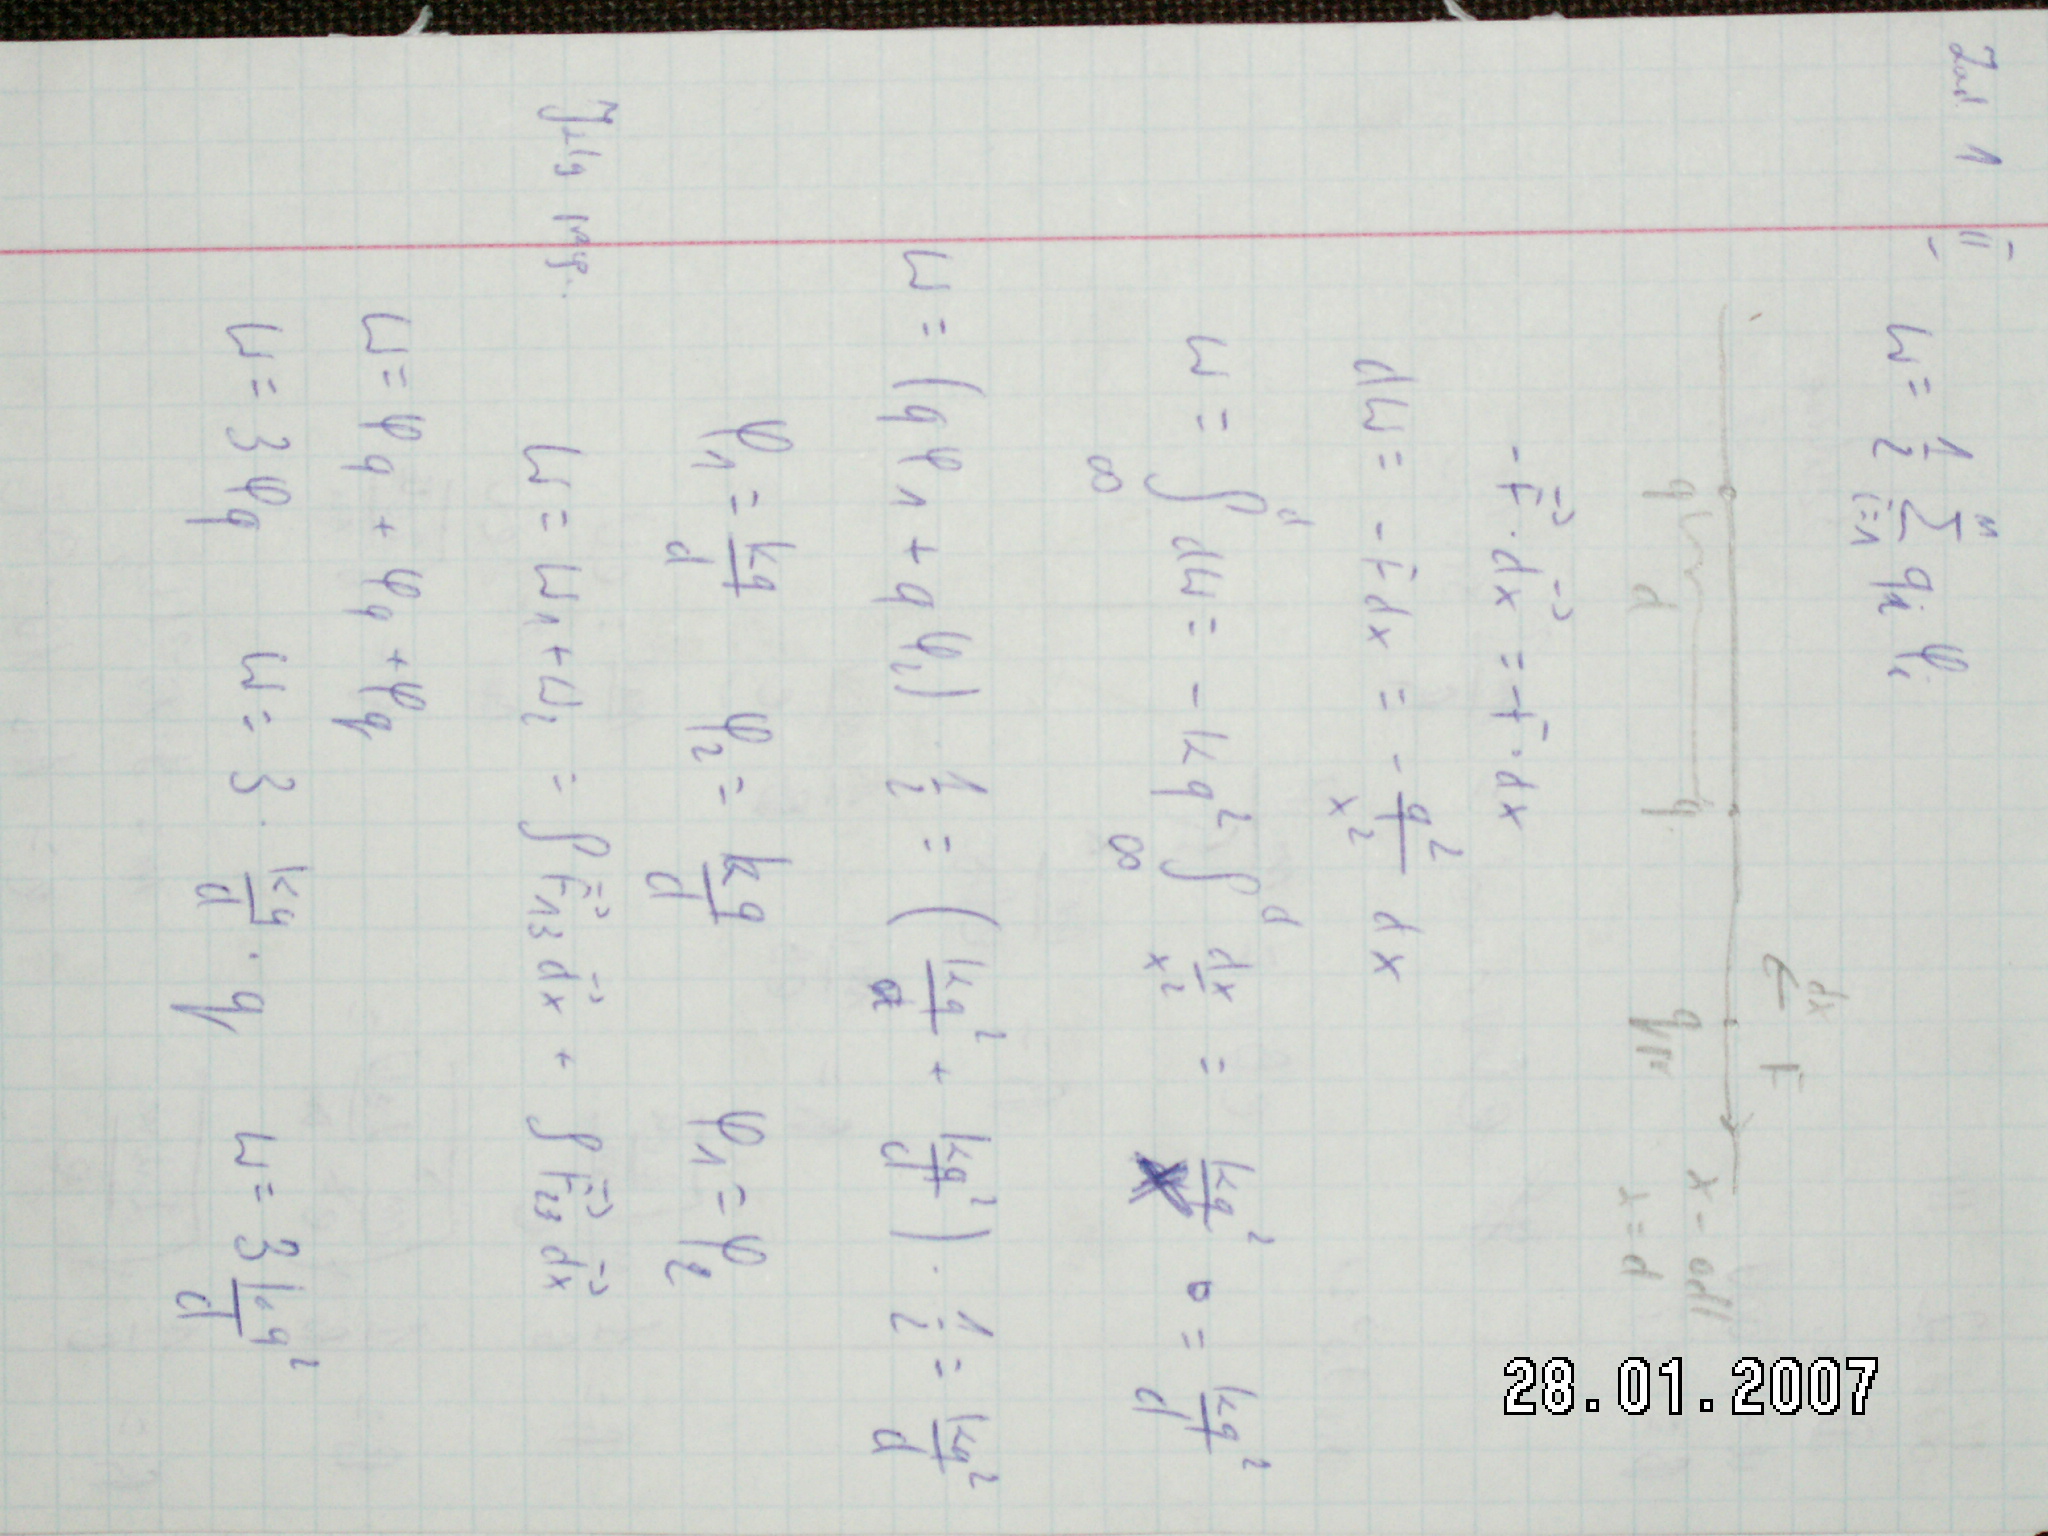 Zad 1
II W = 1/2 Σ_{i=1}^{n} q_i φ_i
dx
F
q q q
d
x - odl
d = x
-F⃗ · dx⃗ = -F · dx
dW = -F dx = - q²/x² dx
W = ∫_∞^d dW = - kq² ∫_∞^d dx/x² = kq²/ = kq²/d
W = (q φ₁ + q φ₂) 1/2 = ( kq²/d + kq²/d ) · 1/2 = kq²/d
φ₁ = kq/d φ₂ = kq/d φ₁ = φ₂
W = W₁ + W₂ = ∫ F⃗₁₃ dx⃗ + ∫ F⃗₂₃ dx⃗
W = φq + φq + φq
W = 3φq W = 3 · kq/d · q W = 3 kq²/d
28.01.2007